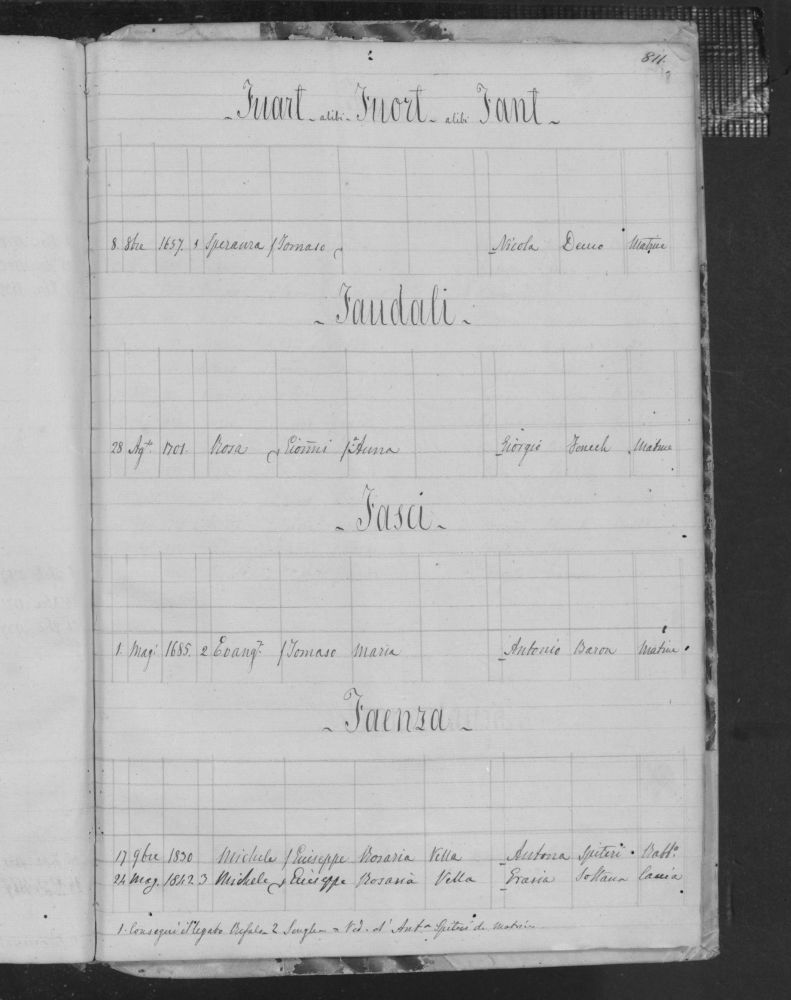 811.
- Fuart - alibi - Fuort - alibi Fant -
8. 8bre 1657. 1 Speranza f Tomaso Nicola Demo Matrice
- Faudali -
28 Agto. 1701. Rosa Gioñni Anna Giorgio Fenech Matrice
- Fasci -
1. Mag. 1685. 2 Evangta. f Tomaso Maria Antonio Baron Matrice
- Faenza -
17 9bre 1830 Michele f Giuseppe Rosaria Vella Antona Spiteri Rabto.
24 Mag. 1842 3 Michele Giuseppe Rosaria Vella Grazia Soltana
1. Conseguì il legato 2 3 Ved. d' Anta Spiteri da Matrice